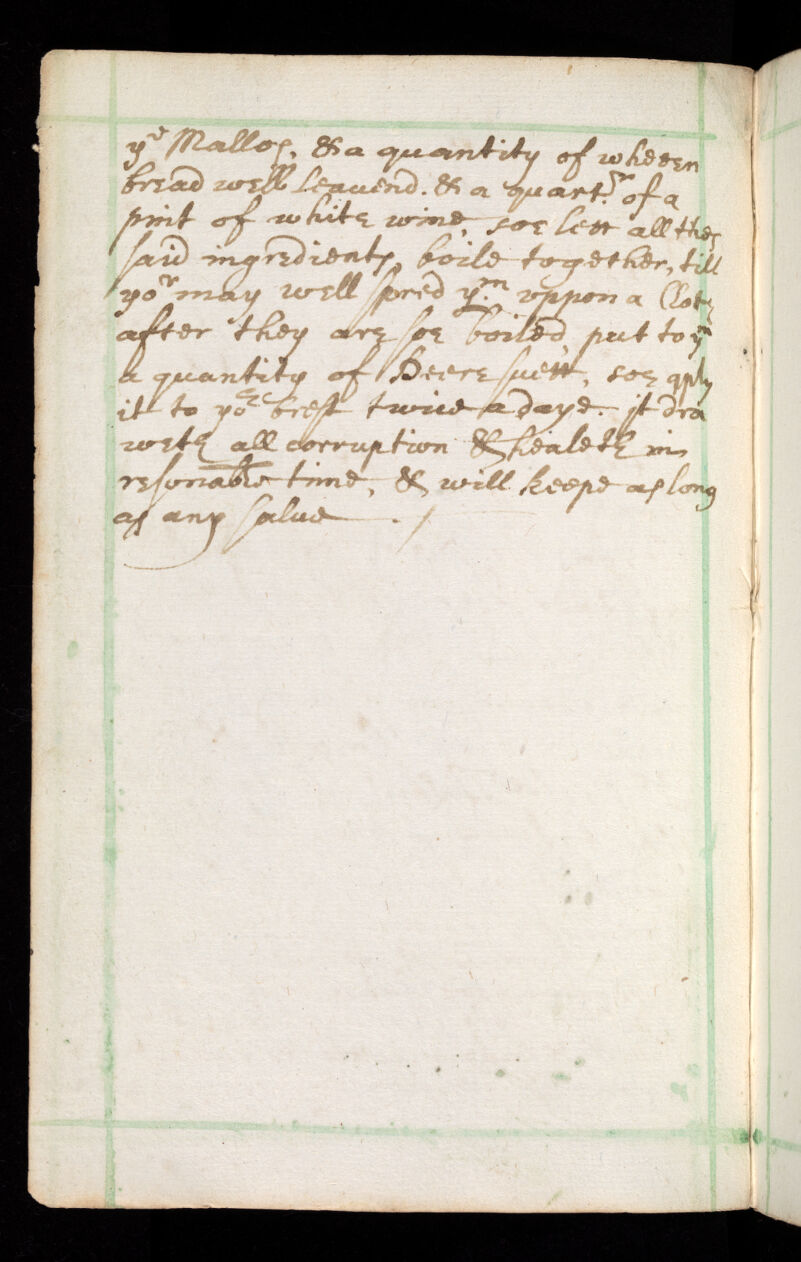 ye Mallos, & a quantity of wheeten
bread well leavend. & a quartr. of a
pint of white wine, soe lett all thes
said ingredients, boile together, till
yor may well spred ym. uppon a Cloth
after they are soe boiled, put to ym
a quantity of Deere suett, soe aply
it to yor brest twice a daye. it dra
weth all corruption & healeth in
resonable time, & will keepe as long
as any salve ./